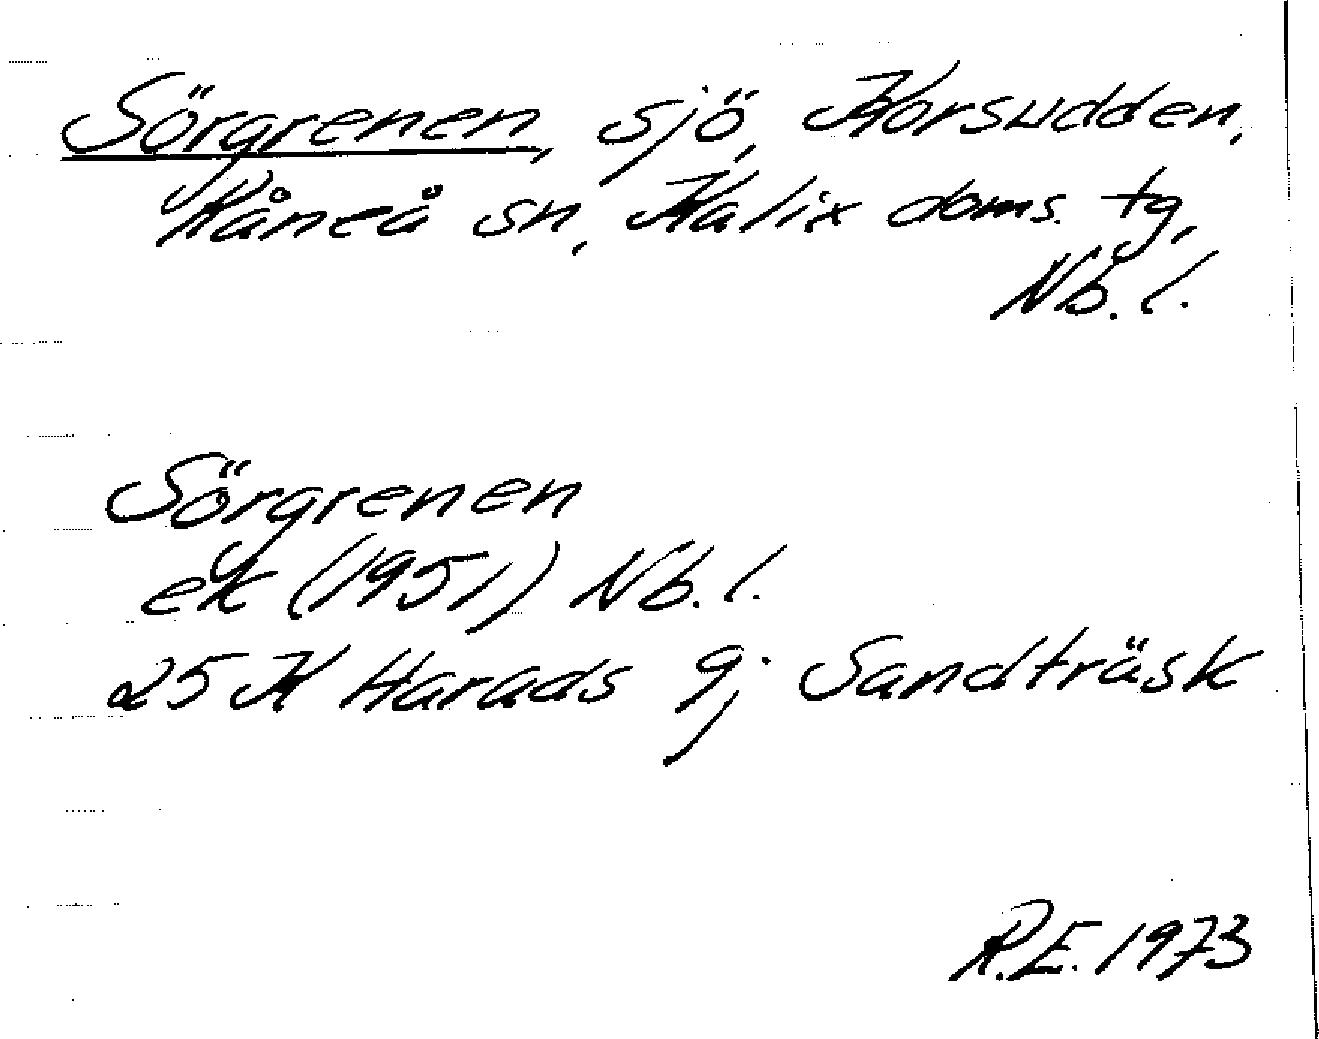 Sörgrenen, sjö, Korsudden,
Råneå sn, Kalix doms. tg,
Nb. l.
Sörgrenen
ek (1951) Nb. l.
25 K Harads 9j Sandträsk
R.E. 1973